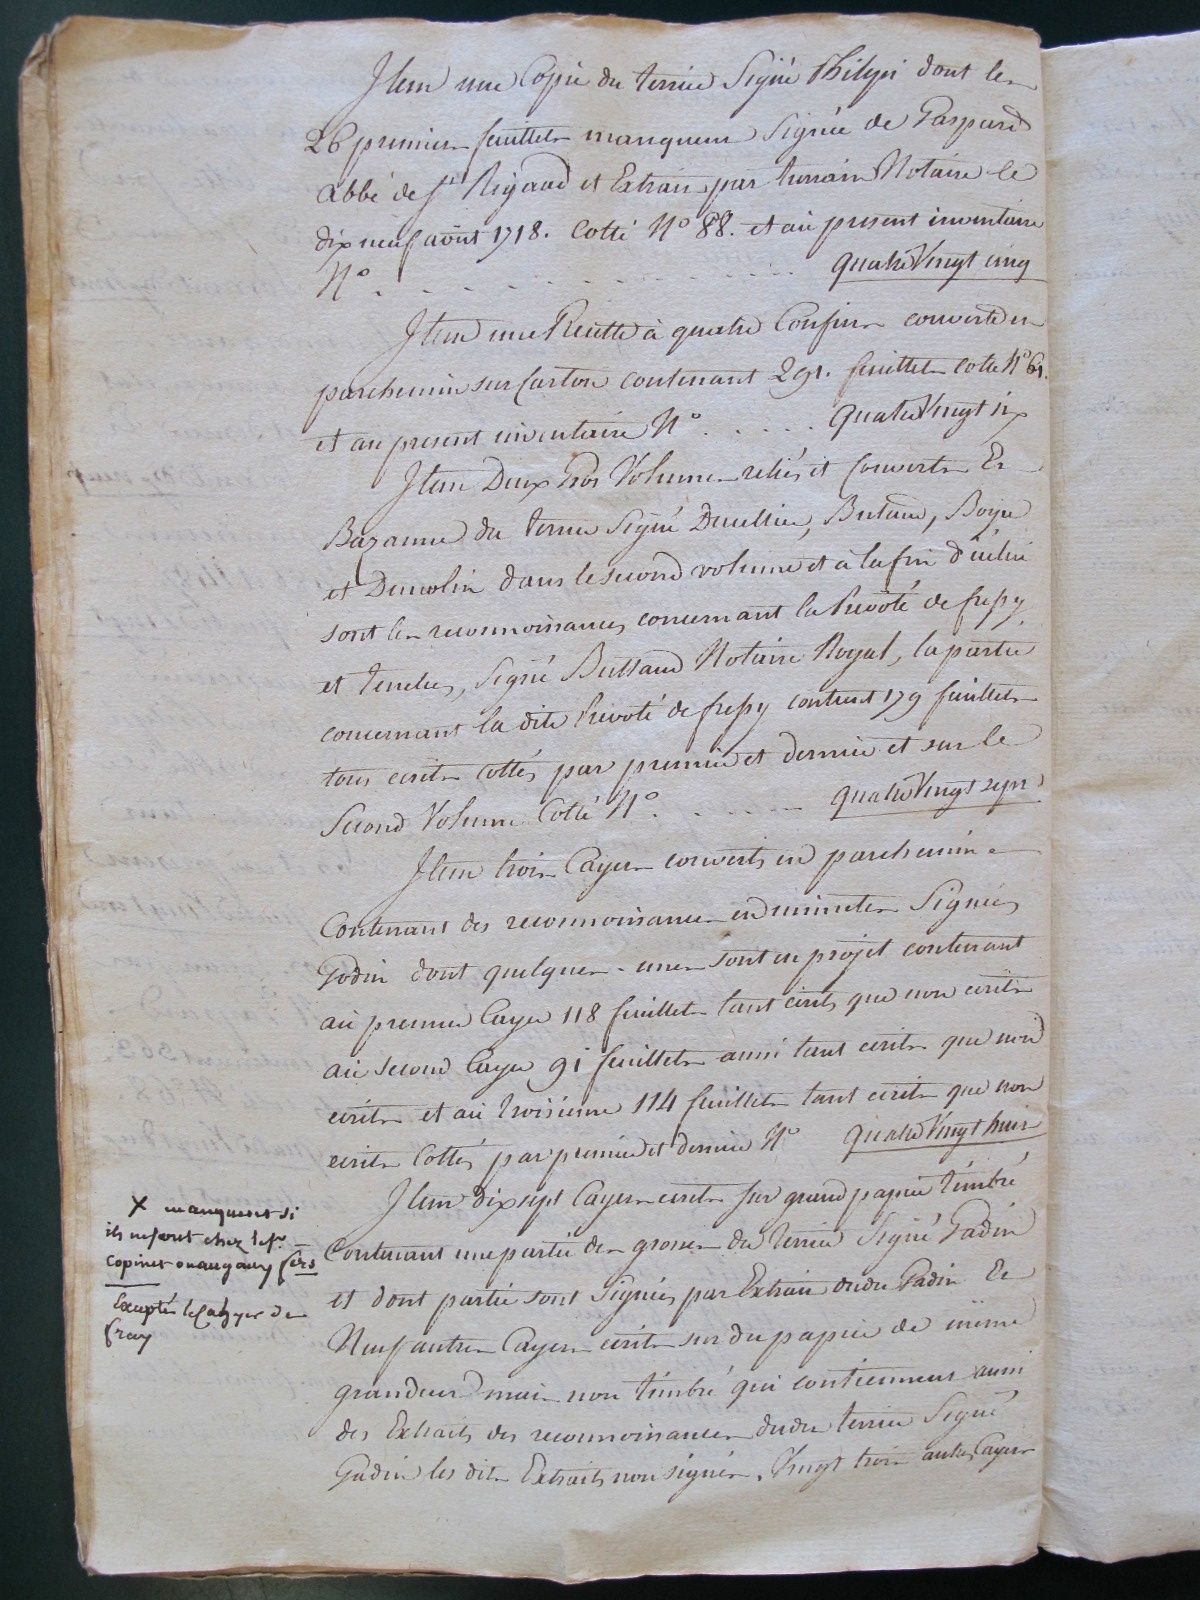 Item une Copie du terrier Signé Philipi dont les
26 premiers feuillets manquent Signée de Gaspard
abbé de St Rigaud et Extrait par terrain Notaire le
dix neuf août 1718. Cotté N° 88. et au present inventaire
N° . . . . . . . . . . . Quatre Vingt cinq
Item une Recette à quatre Confins couverte en
parchemin sur Carton contenant 291. feuillets cotté N° 61.
et au present inventaire N° . . . . . Quatre Vingt six
Item Deux Gros Volumes reliés et Couverts En
Bazanne du terrier Signé Butaud, Boyer
et Dumolin dans le second volume et à la fin d'icelui
sont les reconnoissances concernant la Prevôté de frepy
et Tenches, Signé Bussaud Notaire Royal, la partie
concernant la dite Prevoté de frepy contient 179 feuillets
tous ecrits cottés par premier et dernier et sur le
Second Volume Cotté N° . . . . Quatre Vingt sept
Item trois Cayers couverts en parchemin
Contenant des reconnoissances en minutes Signées
Godin dont quelques-unes sont en projet contenant
au premier Cayer 118 feuillets tant ecrits que non ecrits
au second Cayer 91 feuillets aussi tant ecrits que non
ecrits et au troisieme 114 feuillets tant ecrits que non
ecrits Cottés par premier et dernier N° Quatre Vingt huit
Item dix sept Cayers ecrits sur grand papier timbré
Contenant une partie des grosses du terrier Signé Gadin
et dont partie sont Signées par Extrait dudit Gadin Et
Neuf autres Cayers ecrits sur du papier de même
grandeur mais non timbré qui contiennent aussi
des Extraits des reconnoissances dudit terrier Signé
Gadin les dits Extraits non signés. Vingt trois autres Cayers
X manquent si
ils ne sont chez le sr
Copinet
Exceptés le Cahyer de
Cray